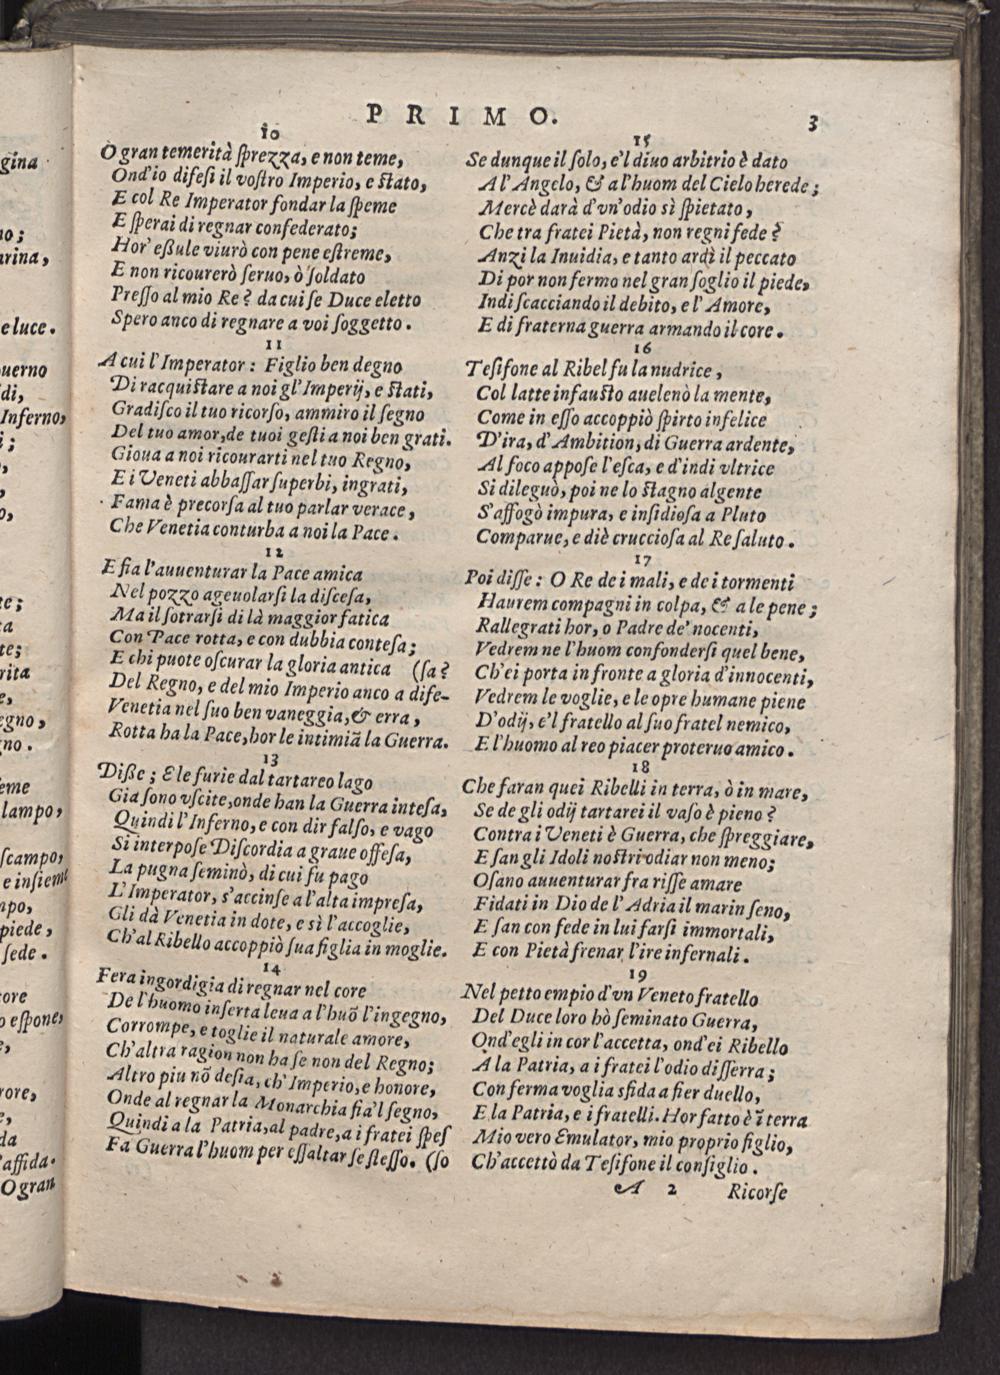 PRIMO. 3
10
O gran temerità ſprezza, e non teme,
Ond'io difeſi il voſtro Imperio, e ſtato,
E col Re Imperator fondar la ſpeme
E ſperai di regnar confederato;
Hor' eſsule viurò con pene eſtreme,
E non ricourerò ſeruo, ò ſoldato
Preſſo al mio Re? da cui ſe Duce eletto
Spero anco di regnare a voi ſoggetto.
11
A cui l'Imperator: Figlio ben degno
Di racquiſtare a noi gl'Imperij, e ſtati,
Gradiſco il tuo ricorſo, ammiro il ſegno
Del tuo amor, de tuoi geſti a noi ben grati.
Gioua a noi ricourarti nel tuo Regno,
E i Veneti abbaſſar ſuperbi, ingrati,
Fama è precorſa al tuo parlar verace,
Che Venetia conturba a noi la Pace.
12
E ſia l'auuenturar la Pace amica
Nel pozzo ageuolarſi la diſceſa,
Ma il ſotrarſi di là maggior fatica
Con Pace rotta, e con dubbia conteſa;
E chi puote oſcurar la gloria antica (ſa?
Del Regno, e del mio Imperio anco a dife-
Venetia nel ſuo ben vaneggia, & erra,
Rotta ha la Pace, hor le intimiā la Guerra.
13
Diſse; E le furie dal tartareo lago
Gia ſono vſcite, onde han la Guerra inteſa,
Quindi l'Inferno, e con dir falſo, e vago
Si interpoſe Diſcordia a graue offeſa,
La pugna ſeminò, di cui fu pago
L'Imperator, s'accinſe a l'alta impreſa,
Gli dà Venetia in dote, e sì l'accoglie,
Ch'al Ribello accoppiò ſua figlia in moglie.
14
Fera ingordigia di regnar nel core
De l'huomo inſerta leua a l'huō l'ingegno,
Corrompe, e toglie il naturale amore,
Ch'altra ragion non ha ſe non del Regno;
Altro piu nō deſia, ch'Imperio, e honore,
Onde al regnar la Monarchia ſia'l ſegno,
Quindi a la Patria, al padre, a i fratei ſpeſ
Fa Guerra l'huom per eſſaltar ſe ſteſſo. (ſo
15
Se dunque il ſolo, e'l diuo arbitrio è dato
A l'Angelo, & a l'huom del Cielo herede;
Mercè darà d'vn'odio sì ſpietato,
Che tra fratei Pietà, non regni fede?
Anzi la Inuidia, e tanto ardì il peccato
Di por non fermo nel gran ſoglio il piede,
Indi ſcacciando il debito, e l'Amore,
E di fraterna guerra armando il core.
16
Teſifone al Ribel fu la nudrice,
Col latte infauſto auelenò la mente,
Come in eſſo accoppiò ſpirto infelice
D'ira, d'Ambition, di Guerra ardente,
Al foco appoſe l'eſca, e d'indi vltrice
Si dileguò, poi ne lo ſtagno algente
S'affogò impura, e inſidioſa a Pluto
Comparue, e diè crucciosa al Re ſaluto.
17
Poi diſſe: O Re de i mali, e de i tormenti
Haurem compagni in colpa, & a le pene;
Rallegrati hor, o Padre de' nocenti,
Vedremne l'huom confonderſi quel bene,
Ch'ei porta in fronte a gloria d'innocenti,
Vedrem le voglie, e le opre humane piene
D'odij, e'l fratello al ſuo fratel nemico,
E l'huomo al reo piacer proteruo amico.
18
Che faran quei Ribelli in terra, ò in mare,
Se de gli odij tartarei il vaſo è pieno?
Contra i Veneti è Guerra, che ſpreggiare,
E ſan gli Idoli noſtri odiar non meno;
Oſano auuenturar fra riſſe amare
Fidati in Dio de l'Adria il marin ſeno,
E ſan con fede in lui farſi immortali,
E con Pietà frenar l'ire infernali.
19
Nel petto empio d'vn Veneto fratello
Del Duce loro hò ſeminato Guerra,
Ond'egli in cor l'accetta, ond'ei Ribello
A la Patria, a i fratei l'odio diſſerra;
Con ferma voglia sfida a fier duello,
E la Patria, e i fratelli. Hor fatto è ī terra
Mio vero Emulator, mio proprio figlio,
Ch'accettò da Teſifone il conſiglio.
A 2 Ricorſe
gina
no;
rina,
e luce.
uerno
di,
Inferno,
i;
o,
te;
ta
te;
rita
e,
egno,
no.
eme
lampo,
ſcampo,
e inſieme
npo,
piede,
ſede.
core
o eſpone,
e,
rore,
e,
da
'affida.
O gran